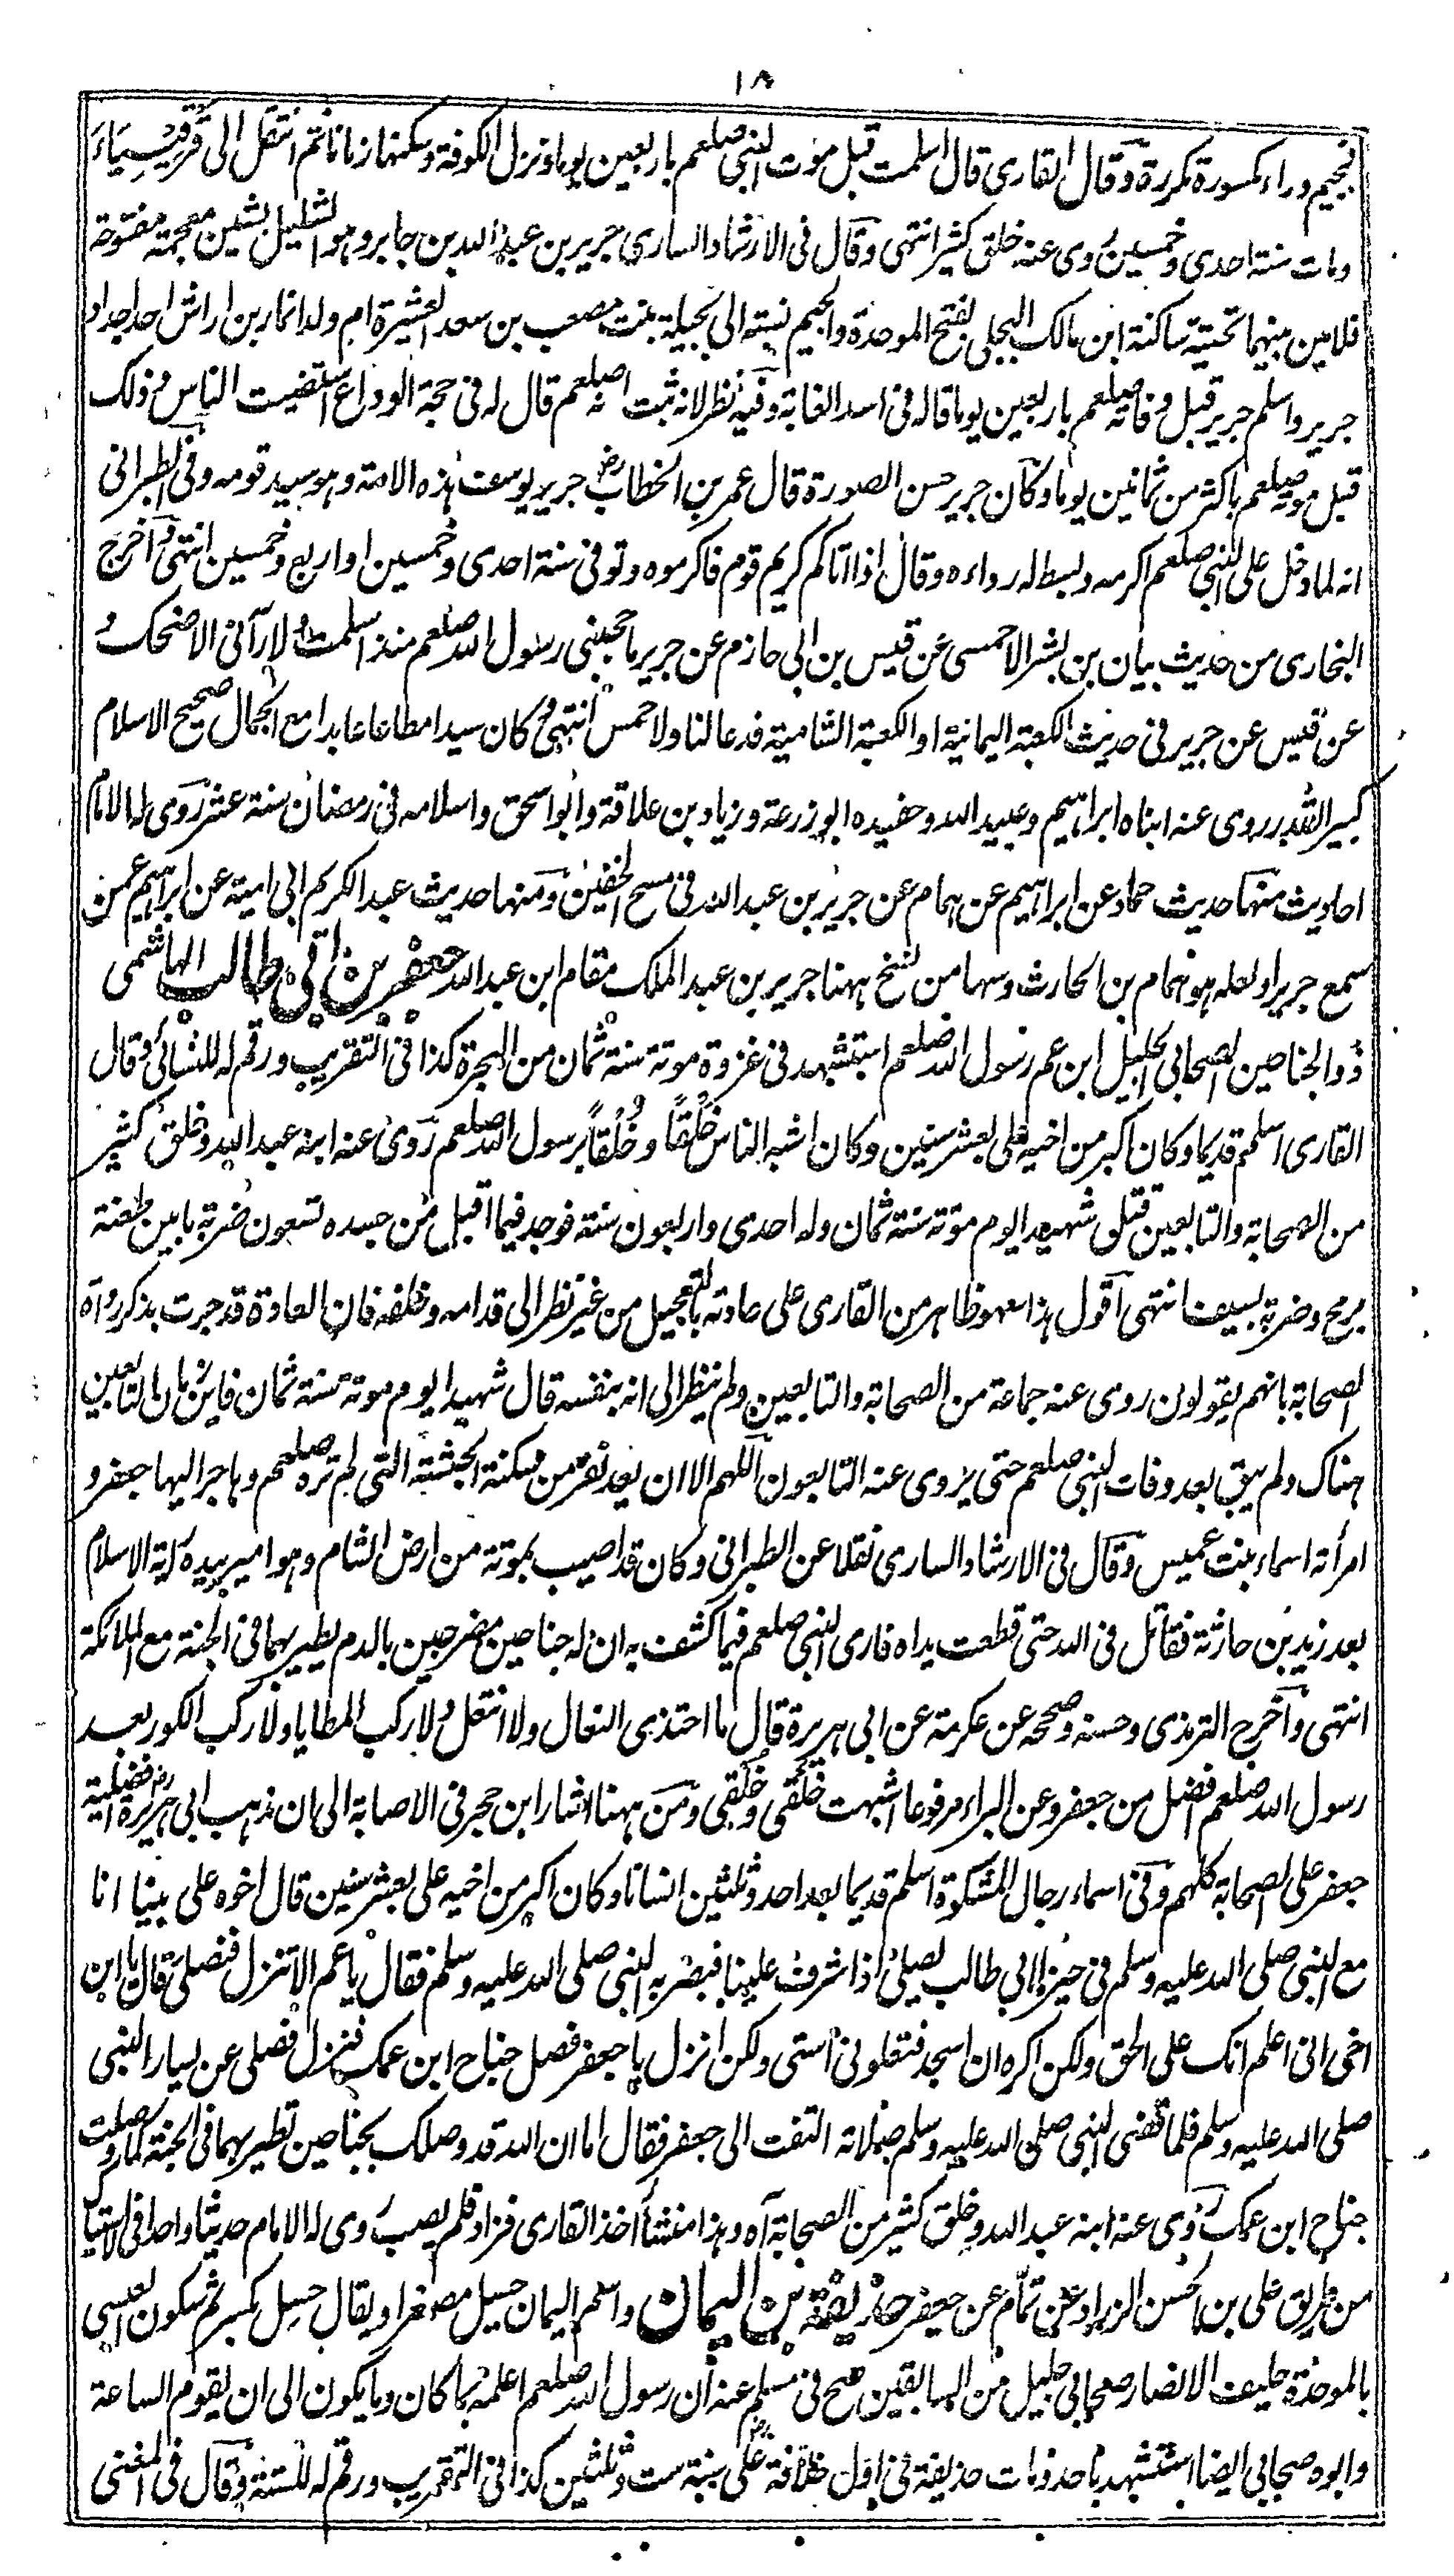 ١٨
فجيم وراء مكسورة مكررة وقال القارى قال اسلمت قبل موت النبى صلعم باربعين يوما ونزل الكوفة وسكنها زمانا ثم انتقل الى قرقيسياء
ومات سنة احدى وخمسين روى عنه خلق كثير انتهى وقال فى الارشاد السارى جرير بن عبد الله بن جابر وهو الشليل بشين معجمة مفتوحة
فلامين بينهما تحتية ساكنة ابن مالك البجلى بفتح الموحدة والجيم نسبته الى بجيلة بنت مصعب بن سعد العشيرة ام ولد انمار بن اراش احد اجداد
جرير واسلم جرير قبل وفاته صلعم باربعين يوما قاله فى اسد الغابة وفيه نظر لانه ثبت انه صلعم قال له فى حجة الوداع استنصت الناس وذلك
قبل موته صلعم باكثر من ثمانين يوما وكان جرير حسن الصورة قال عمر بن الخطاب رض جرير يوسف هذه الامة وهو سيد قومه وفى الطبرانى
انه لما دخل على النبى صلعم اكرمه وبسط له رداءه وقال اذا اتاكم كريم قوم فاكرموه وتوفى سنة احدى وخمسين او اربع وخمسين انتهى واخرج
البخارى من حديث بيان بن بشر الاحمسى عن قيس بن ابى حازم عن جرير ما حجبنى رسول الله صلعم منذ اسلمت ولا رآنى الا ضحك و
عن قيس عن جرير فى حديث الكعبة اليمانية او الكعبة الشامية فدعا لنا ولاحمس انتهى وكان سيدا مطاعا عابدا مع الجمال صحيح الاسلام
كبير القدر روى عنه ابناه ابراهيم وعبيد الله وحفيده ابو زرعة وزياد بن علاقة وابو اسحق واسلامه فى رمضان سنة عشر روى له الامام
احاديث منها حديث حماد عن ابراهيم عن همام عن جرير بن عبد الله فى مسح الخفين ومنها حديث عبد الكريم ابى امية عن ابراهيم عمن
سمع جريرا ولعله هو همام بن الحارث وسها من نسخ ههنا جرير بن عبد الملك مقام ابن عبد الله جعفر بن ابى طالب الهاشمى
ذو الجناحين الصحابى الجليل ابن عم رسول الله صلعم استشهد فى غزوة موتة سنة ثمان من الهجرة كذا فى التقريب ورقم له للنسائى وقال
القارى اسلم قديما وكان اكبر من اخيه على بعشر سنين وكان اشبه الناس خَلْقاً وخُلُقاً برسول الله صلعم روى عنه ابنه عبد الله وخلق كثير
من الصحابة والتابعين قتل شهيدا يوم موتة سنة ثمان وله احدى واربعون سنة فوجد فيما اقبل من جسده تسعون ضربة ما بين طعنة
برمح وضربة بسيف انتهى اقول هذا سهو ظاهر من القارى على عادته بالتعجيل من غير نظر الى قدامه وخلفه فان العادة قد جرت بذكر رواة
الصحابة بانهم يقولون روى عنه جماعة من الصحابة والتابعين ولم ينظر الى انه بنفسه قال شهيدا يوم موتة سنة ثمان فاين زمان التابعين
هناك ولم يبق بعد وفات النبى صلعم حتى يروى عنه التابعون اللهم الا ان يعد نفر من سكنة الحبشة التى لم تره صلعم وهاجر اليها جعفر و
امرأته اسماء بنت عميس وقال فى الارشاد السارى نقلا عن الطبرانى وكان قد اصيب بموتة من ارض الشام وهو امير بيده راية الاسلام
بعد زيد بن حارثة فقاتل فى الله حتى قطعت يداه فارى النبى صلعم فيما كشف به ان له جناحين مضرجين بالدم يطير بهما فى الجنة مع الملائكة
انتهى واخرج الترمذى وحسنه وصححه عن عكرمة عن ابى هريرة قال ما احتذى النعال ولا انتعل ولا ركب المطايا ولا ركب الكور بعد
رسول الله صلعم افضل من جعفر وعن البراء مرفوعا اشبهت خَلْقى وخُلُقى ومن ههنا اشار ابن حجر فى الاصابة الى ان مذهب ابى هريرة رض افضلية
جعفر على الصحابة كلهم وفى اسماء رجال المشكوة اسلم قديما بعد احد وثلثين انسانا وكان اكبر من اخيه على بعشر سنين قال اخوه على بينا انا
مع النبى صلى الله عليه وسلم فى حيز لابى طالب نصلى اذا شرف علينا فبصر به النبى صلى الله عليه وسلم فقال يا عم الا تنزل فتصلى فقال يا ابن
اخى انى اعلم انك على الحق ولكن اكره ان اسجد فتعلونى استى ولكن انزل يا جعفر فصل جناح ابن عمك فنزل فصلى عن يسار النبى
صلى الله عليه وسلم فلما قضى النبى صلى الله عليه وسلم صلاته التفت الى جعفر فقال اما ان الله قد وصلك بجناحين تطير بهما فى الجنة كما وصلت
جناح ابن عمك روى عنه ابنه عبد الله وخلق كثير من الصحابة آه وهذا منشأ اخذ القارى فزاد فلم يصب روى له الامام حديثا واحدا فى الاستياك
من طريق على بن الحسن الزراد عن تمّام عن جعفر حذيفة بن اليمان واسم اليمان حسيل مصغرا ويقال حِسل بكسر ثم سكون العبسى
بالموحدة حليف الانصار صحابى جليل من السابقين صح فى مسلم عنه ان رسول الله صلعم اعلمه بما كان وما يكون الى ان يقوم الساعة
وابوه صحابى ايضا استشهد باحد ومات حذيفة فى اول خلافة على رض سنة ست وثلثين كذا فى التقريب ورقم له للستة وقال فى المغنى